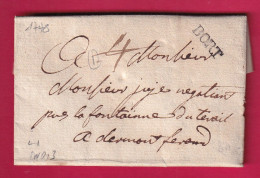 1748
DORT
A Monsieur
4
Monsieur juge negotiant
pres la fontainne du terail
a clermont ferand